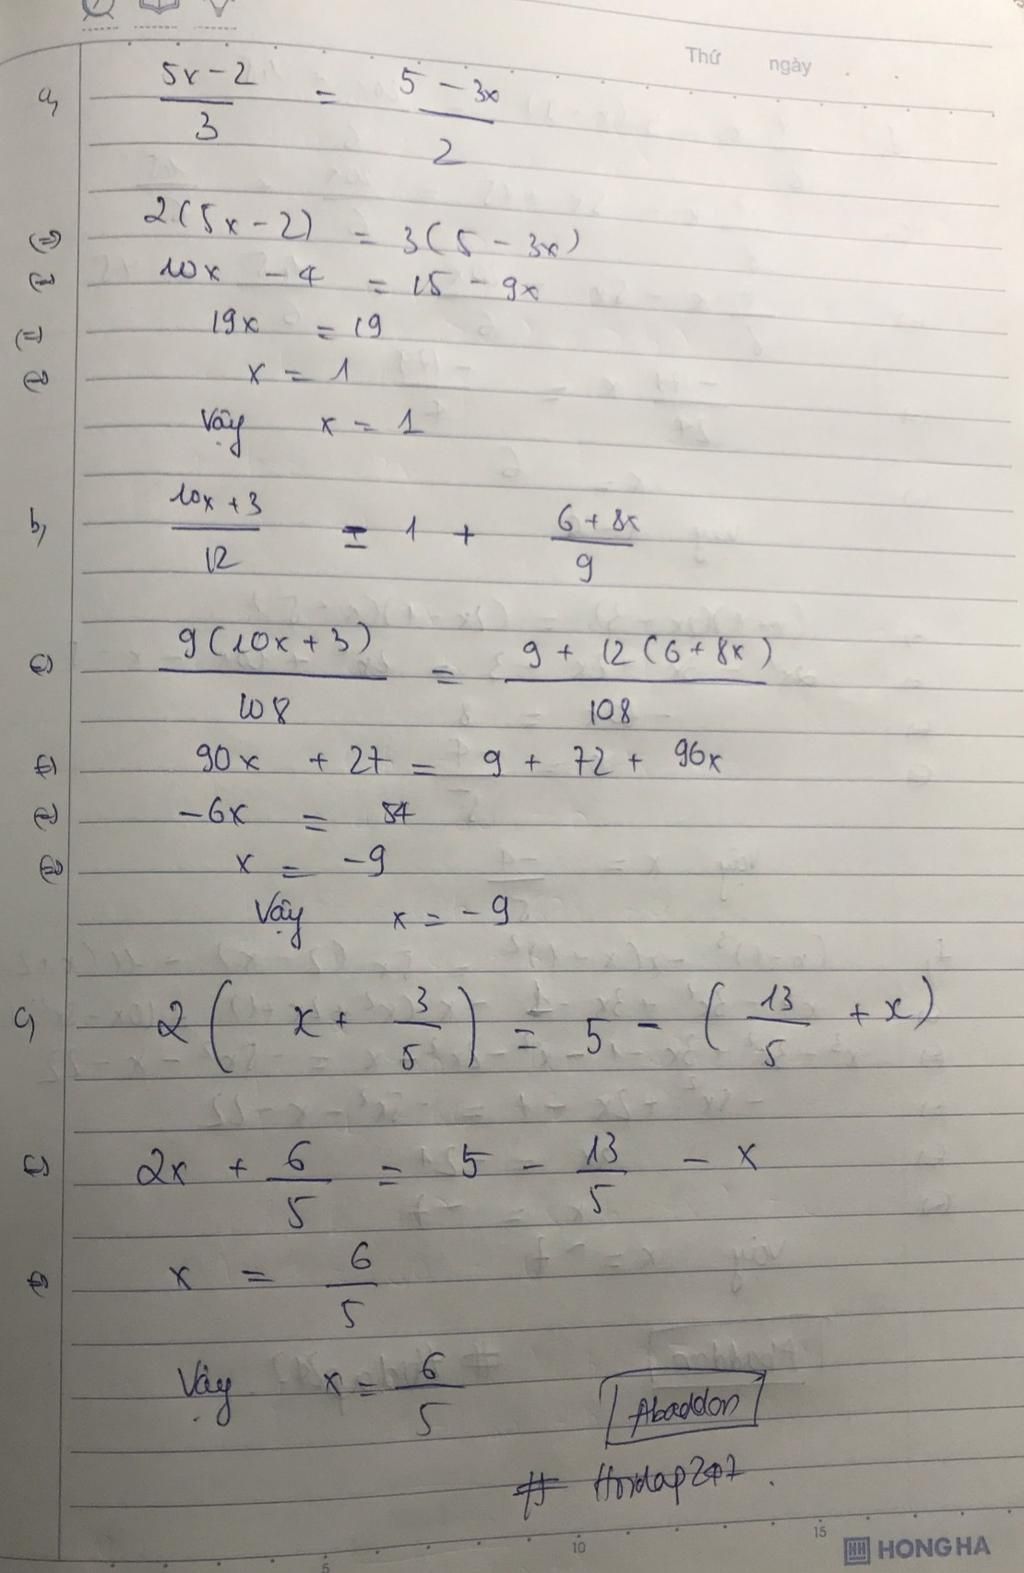 Thứ ngày
a, (5x-2)/3 = (5-3x)/2
⇔ 2(5x-2) = 3(5-3x)
⇔ 10x -4 = 15-9x
⇔ 19x = 19
⇔ x = 1
Vậy x = 1
b, (10x+3)/12 = 1 + (6+8x)/9
⇔ 9(10x+3)/108 = (9+12(6+8x))/108
⇔ 90x +27 = 9 + 72 + 96x
⇔ -6x = 54
⇔ x = -9
Vậy x = -9
c, 2(x + 3/5) = 5 - (13/5 + x)
⇔ 2x + 6/5 = 5 - 13/5 - x
⇔ x = 6/5
Vậy x = 6/5
Abaddon
# Hoidap247.
5 10 15
HONG HA